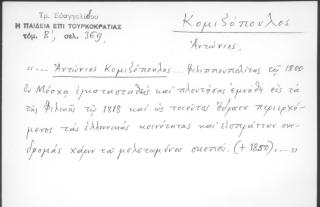 Τρ. Εὐαγγελίδου
Η ΠΑΙΔΕΙΑ ΕΠΙ ΤΟΥΡΚΟΚΡΑΤΙΑΣ
τόμ. Β', σελ. 369
Κομιζόπουλος
Ἀντώνιος.
«... Ἀντώνιος Κομιζόπουλος... Φιλιππουπολίτης τῷ 1800
ἐν Μόσχᾳ ἐγκατασταθείς καί πλουτήσας ἐμυήθη εἰς τά
τῆς Φιλικῆς τῷ 1818 καί ὡς τοιοῦτος ἔδρασε περιερχό-
μενος τάς ἑλληνικάς κοινότητας καί εἰσπράττων συν-
δρομάς χάριν τοῦ μελετωμένου σκοποῦ. (+1850)....»